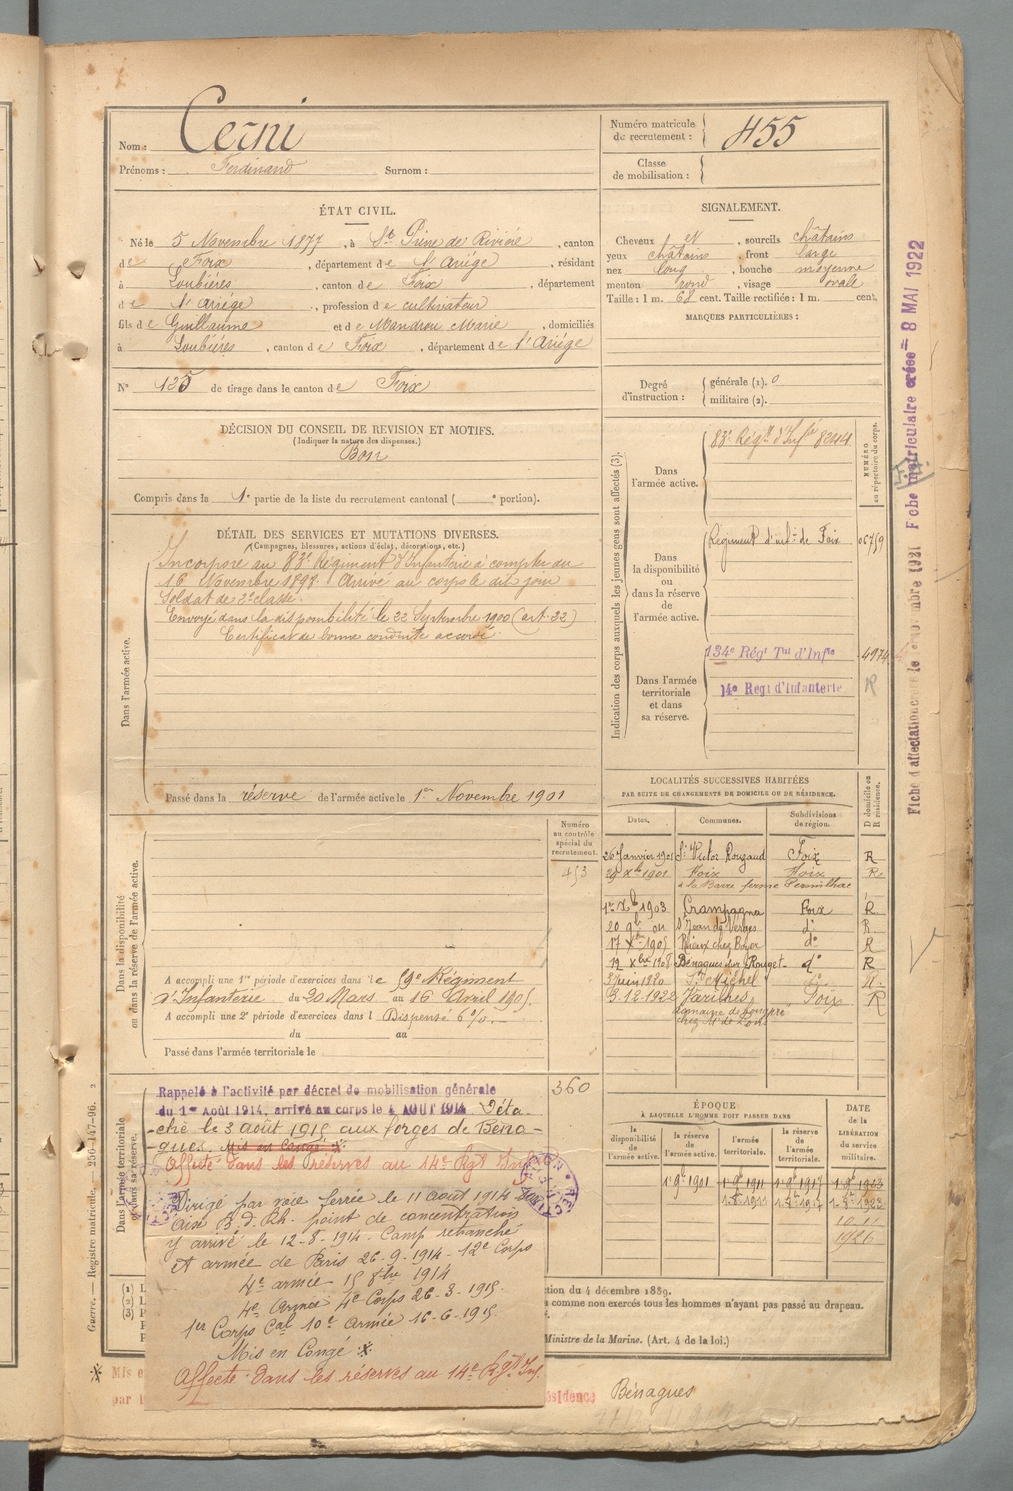 Nom : Cerni
Prénoms : Ferdinand Surnom :
Numéro matricule du recrutement : 455
Classe de mobilisation :
ÉTAT CIVIL.
Né le 5 Novembre 1877, à St Pierre de Rivière, canton
de Foix, département de l'Ariège, résidant
à Loubières, canton de Foix, département
de l'Ariège, profession de cultivateur
fils de Guillaume et de Mandrou Marie, domiciliés
à Loubières, canton de Foix, département de l'Ariége
N° 125 de tirage dans le canton de Foix
SIGNALEMENT.
Cheveux et, sourcils châtains
yeux châtains, front large
nez long, bouche moyenne
menton rond, visage ovale
Taille : 1 m. 68 cent. Taille rectifiée : 1 m. cent.
MARQUES PARTICULIÈRES :
Degré d'instruction : générale (1). 0
militaire (2).
DÉCISION DU CONSEIL DE REVISION ET MOTIFS.
(Indiquer la nature des dispenses.)
Bon
Compris dans la 1e partie de la liste du recrutement cantonal ( e portion).
DÉTAIL DES SERVICES ET MUTATIONS DIVERSES.
(Campagnes, blessures, actions d'éclat, décorations, etc.)
Dans l'armée active.
Incorporé au 83e Régiment d'Infanterie à compter du
16 Novembre 1898. Arrivé au corps le dit jour
Soldat de 2e classe.
Envoyé dans la disponibilité le 22 Septembre 1900 (art. 22)
Certificat de bonne conduite accordé.
Passé dans la réserve de l'armée active le 1er Novembre 1901
Indication des corps auxquels les jeunes gens sont affectés (3).
NUMÉRO au répertoire du corps.
Dans l'armée active.
83e Régt d'Infie 8244
Dans la disponibilité ou dans la réserve de l'armée active.
Régiment d'infie de Foix 06759
Dans l'armée territoriale et dans sa réserve.
134e Régt Tal d'Infie 4974
14e Regt d'Infanterie R
Fiche d'affectation créée le novembre 1921 Fiche matriculaire créée = 8 MAI 1922
LOCALITÉS SUCCESSIVES HABITÉES
PAR SUITE DE CHANGEMENTS DE DOMICILE OU DE RÉSIDENCE.
D domicile ou R résidence.
Dates. Communes. Subdivisions de région.
26 Janvier 1901 St Victor Rouzaud Foix R
29 Xbre 1901 Foix Foix R
à la Barre ferme
1er Xb 1903 Crampagna Foix R
20 9b ou St Jean de Verges do R
17 Xb 1905 Rieux chez Boyer do R
12 Xbre 1908 Bénagues sur Rouget do R
St Michel
3.12.1922 Varilhes Foix R
Numéro au contrôle spécial du recrutement.
453
Dans la disponibilité ou dans la réserve de l'armée active.
A accompli une 1re période d'exercices dans le 59e Régiment
d'Infanterie du 20 Mars au 16 Avril 1905.
A accompli une 2e période d'exercices dans l Dispensé 6%
du au
Passé dans l'armée territoriale le
Dans l'armée territoriale et dans sa réserve.
Rappelé à l'activité par décret de mobilisation générale
du 1er Août 1914, arrivé au corps le 4 AOUT 1914 Déta
ché le 3 août 1915 aux forges de Béna-
gues. Mis en Congé
Affecté dans les réserves au 14e Rgt Inf
360
Dirigé par voie ferrée le 11 août 1914 sur
Aix B. d. Rh. point de concentration
y arrivé le 12-8-1914. Camp retranché
et armée de Paris 26-9-1914 - 12e Corps
4e armée 15 8bre 1914
4e Armée 4e Corps 26-3-1915.
1er Corps Cal 10e Armée 16-6-1915.
Mis en Congé
Affecté dans les réserves au 14e Rgt Inf.
ÉPOQUE
À LAQUELLE L'HOMME DOIT PASSER DANS
DATE DE LA LIBÉRATION du service militaire.
la disponibilité de l'armée active.
la réserve de l'armée active.
l'armée territoriale.
la réserve de l'armée territoriale.
1 9b 1901 1 9b 1911 1 9b 1917 1 9b 1923
10-11
1926
ction du 4 décembre 1889.
s comme non exercés tous les hommes n'ayant pas passé au drapeau.
Ministre de la Marine. (Art. 4 de la loi.)
Guerre. — Registre matricule. — 256-147-96. 2
Mis e
par l
ésidence Bénagues